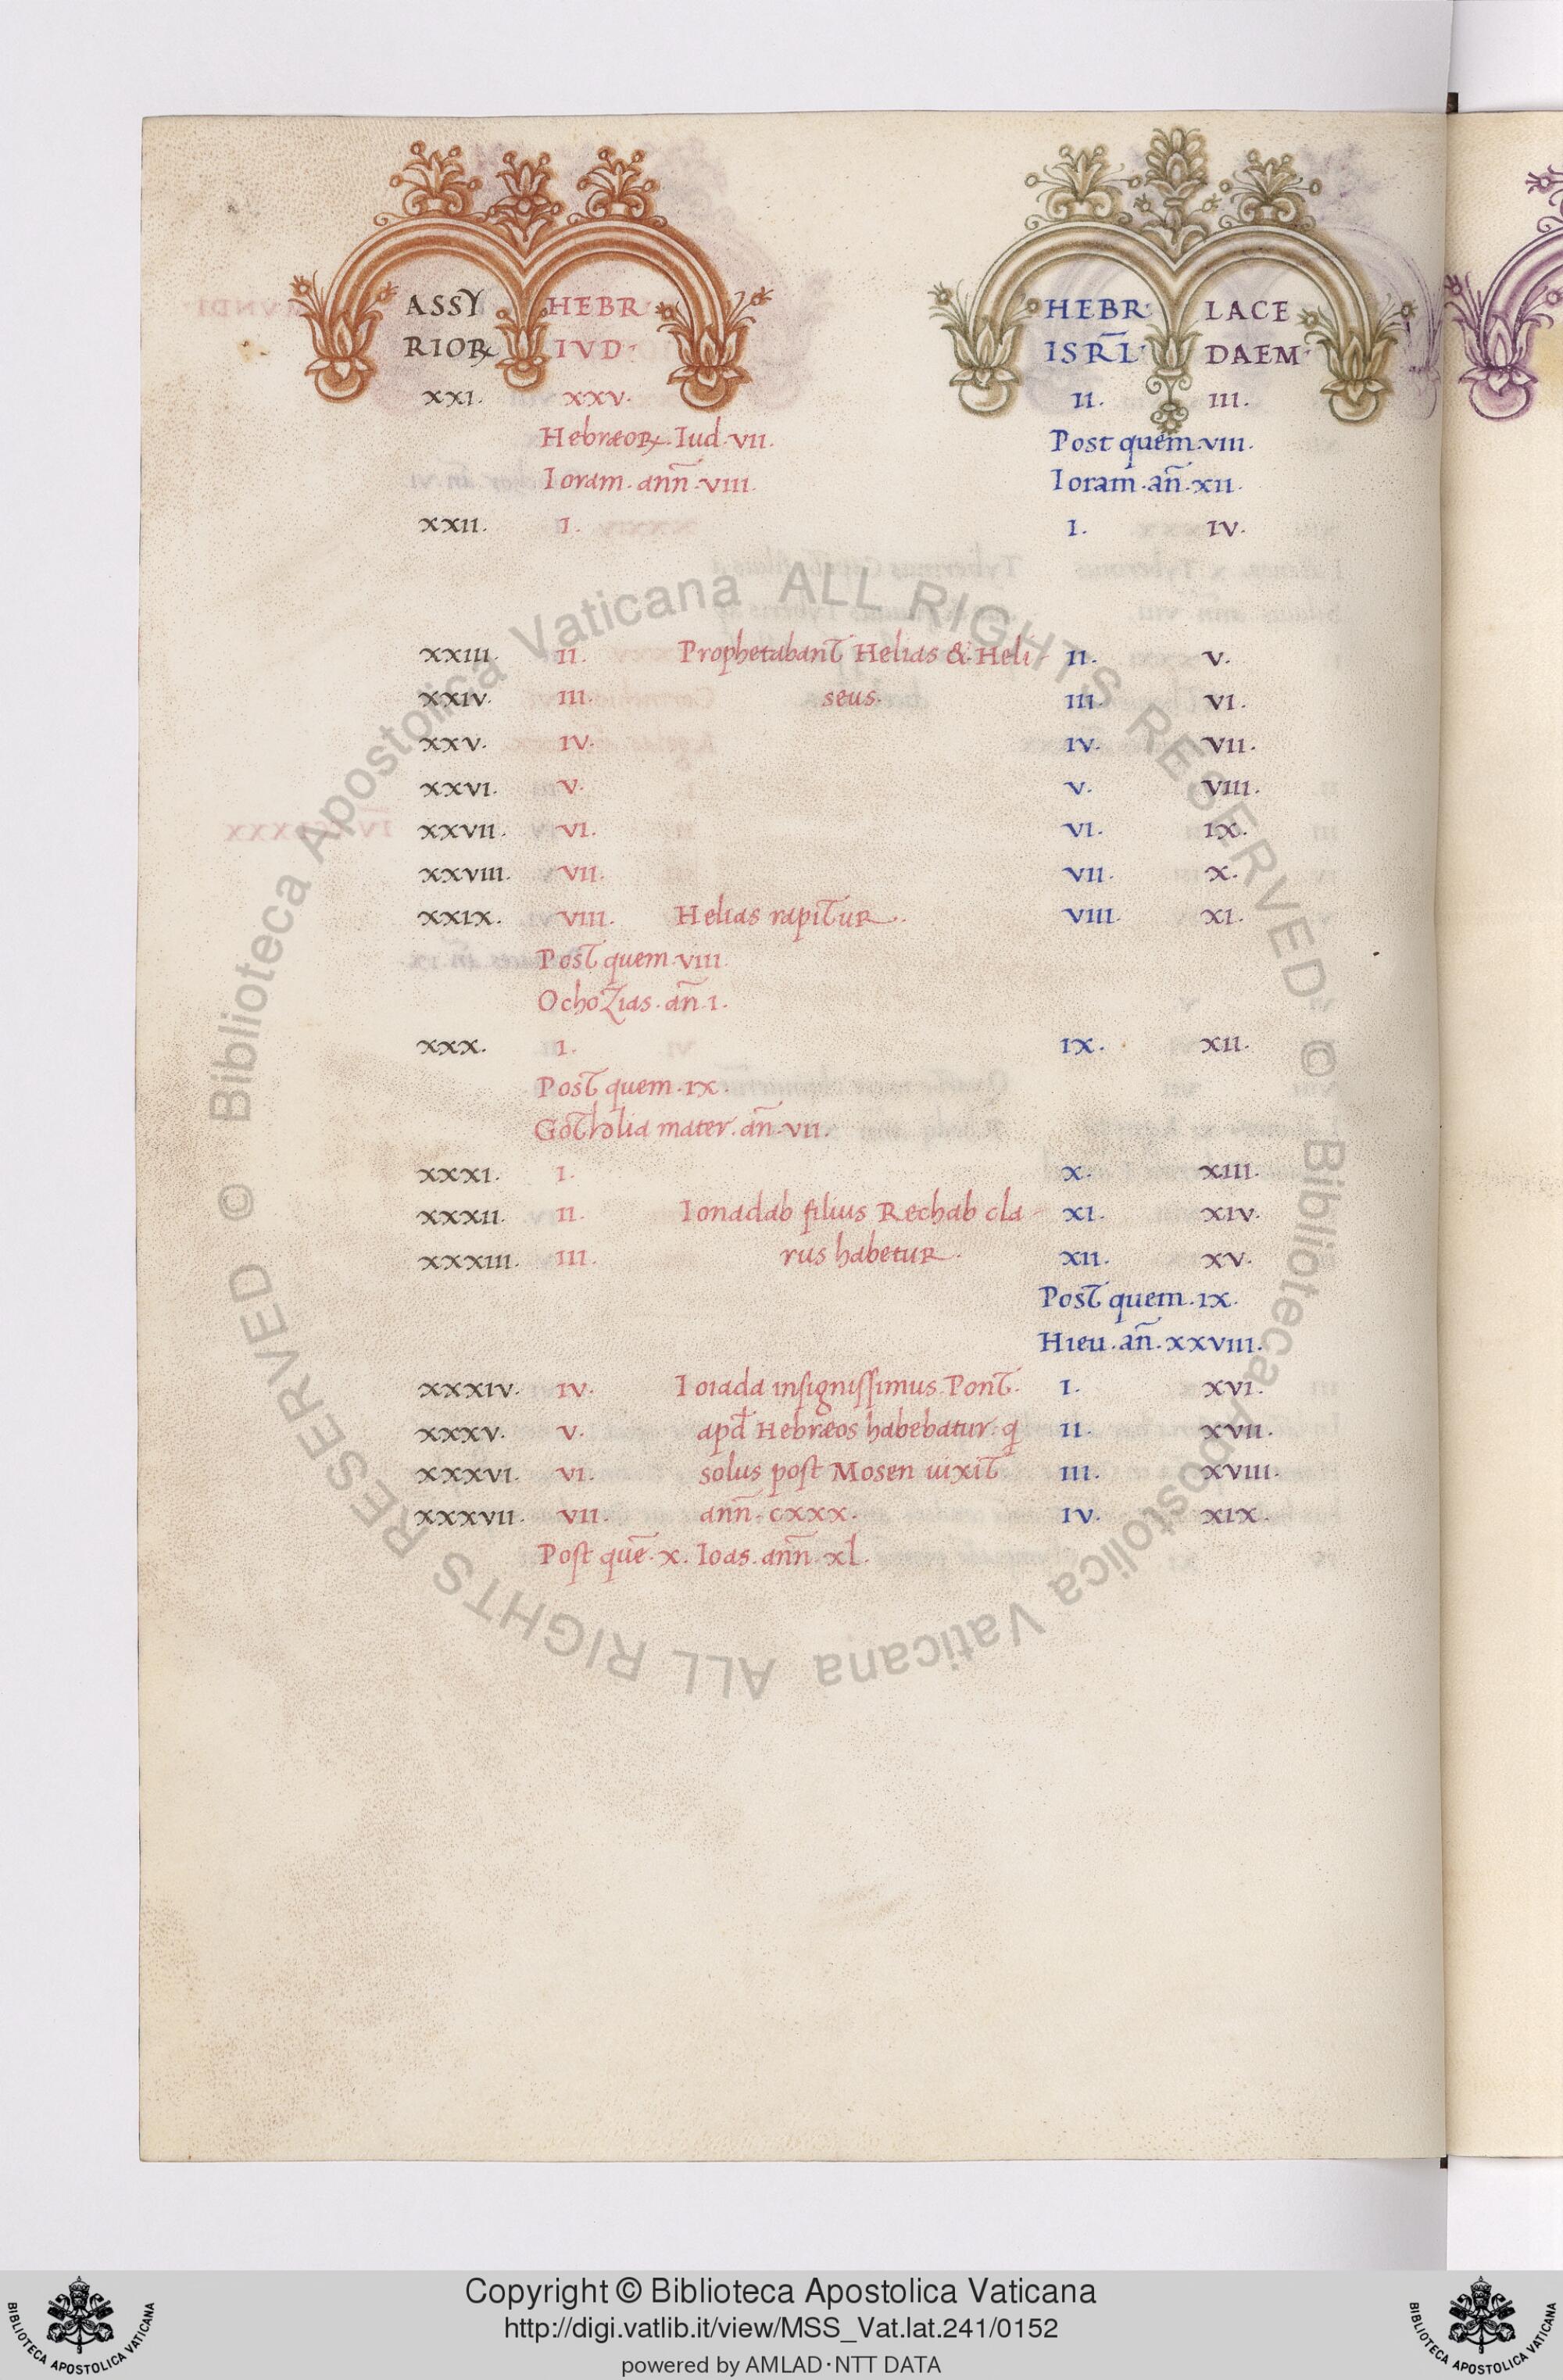 ASSY HEBR HEBR LACE
RIOꝜ IVD ISRL̄ DAEM
XXI. XXV. II. III.
HebræoꝜ. Iud. VII. Post quem. VIII.
Ioram. ann̄. VIII. Ioram. an̄. XII.
XXII. I. I. IV.
XXIII. II. Prophetabant Helias & Heli II. V.
XXIV. III. seus. III. VI.
XXV. IV. IV. VII.
XXVI. V. V. VIII.
XXVII. VI. VI. IX.
XXVIII. VII. VII. X.
XXIX. VIII. Helias rapitur. VIII. XI.
Post quem. VIII.
Ochozias. an̄. I.
XXX. I. IX. XII.
Post quem. IX.
Gotholia mater. an̄. VII.
XXXI. I. X. XIII.
XXXII. II. Ionadab filius Rechab cla XI. XIV.
XXXIII. III. rus habetur. XII. XV.
Post quem. IX.
Hieu. an̄. XXVIII.
XXXIV. IV. Ioiada insignissimus Pont. I. XVI.
XXXV. V. apd̄ Hebræos habebatur. q II. XVII.
XXXVI. VI. solus post Mosen uixit III. XVIII.
XXXVII. VII. ann̄. CXXX. IV. XIX.
Post quē. X. Ioas. ann̄. XL.
© Biblioteca Apostolica Vaticana ALL RIGHTS RESERVED
© Biblioteca Apostolica Vaticana ALL RIGHTS RESERVED
Copyright © Biblioteca Apostolica Vaticana
http://digi.vatlib.it/view/MSS_Vat.lat.241/0152
powered by AMLAD·NTT DATA
BIBLIOTECA APOSTOLICA VATICANA
BIBLIOTECA APOSTOLICA VATICANA